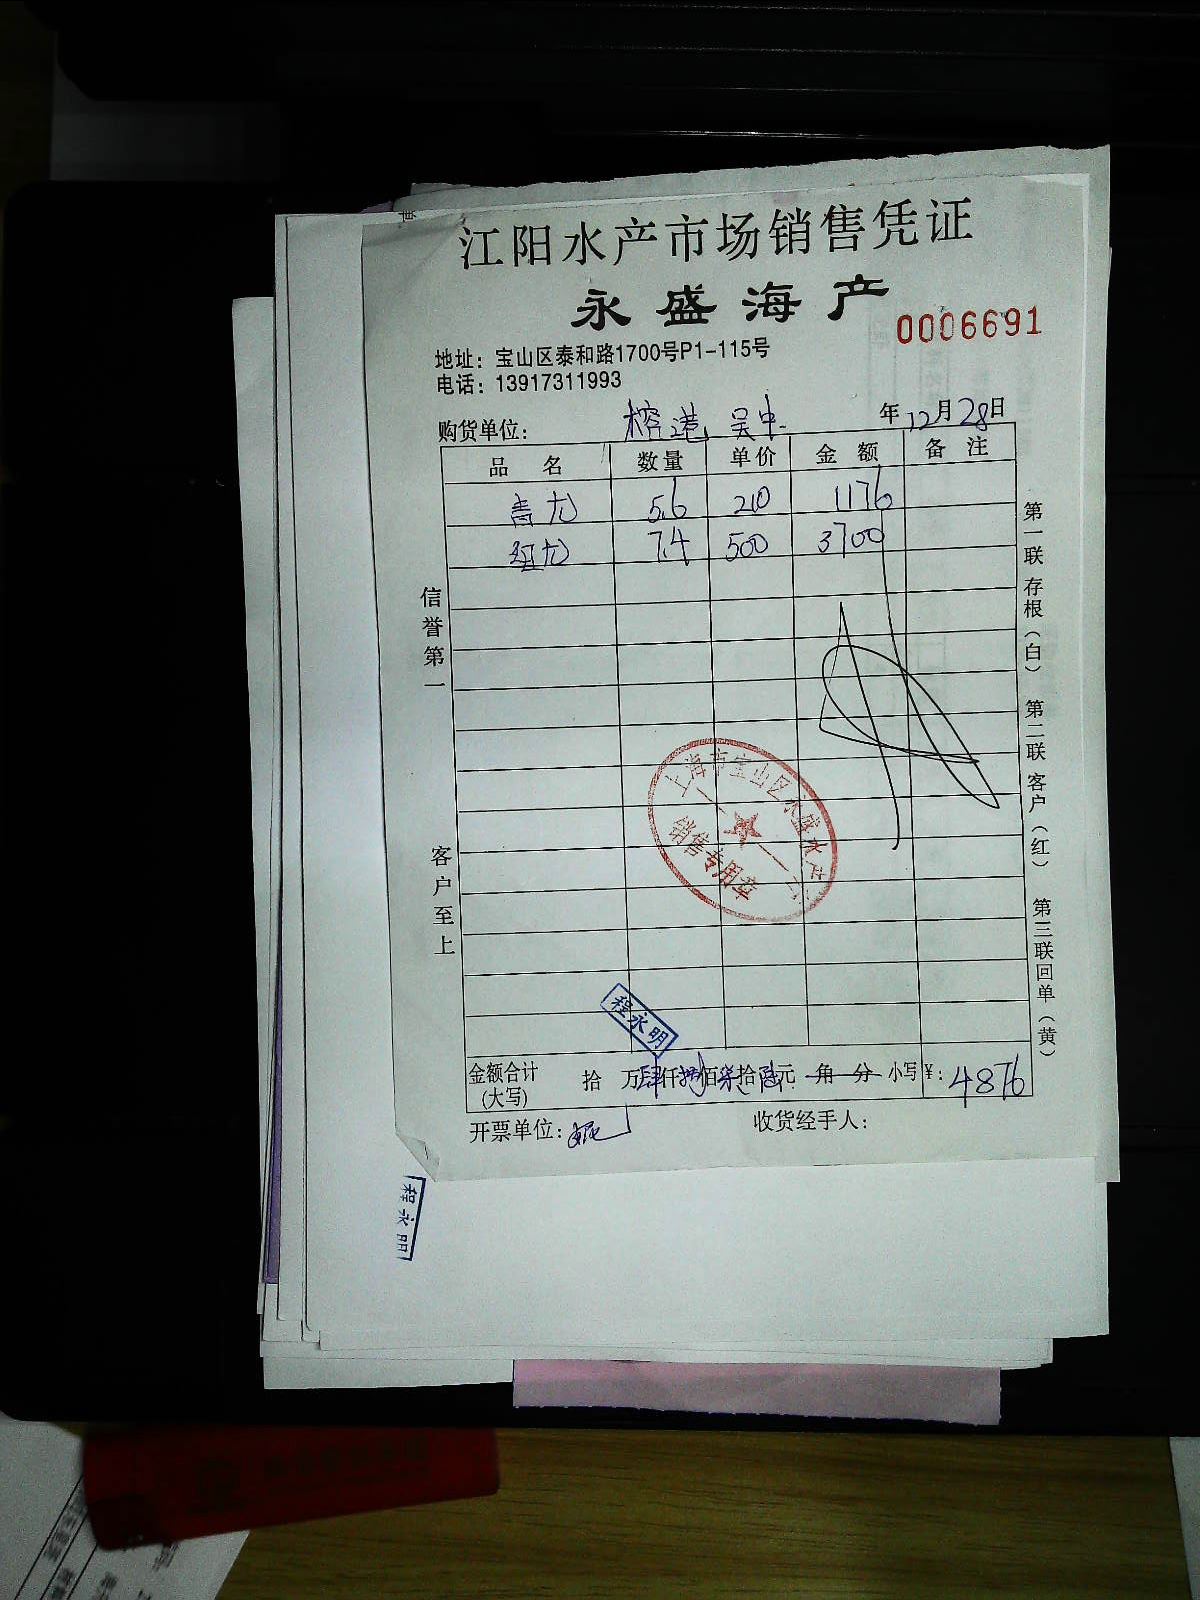 江阳水产市场销售凭证
永盛海产
0006691
地址：宝山区泰和路1700号P1-115号
电话：13917311993
购货单位： 榕港 吴中 年12月28日
品名 数量 单价 金额 备注
青龙 5.6 210 1176
红龙 7.4 500 3700
信誉第一
客户至上
第一联存根（白） 第二联客户（红） 第三联回单（黄）
上海市宝山区永盛水产
销售专用章
程永明
金额合计（大写） 拾 万肆仟捌佰柒拾陆元 角 分 小写¥：4876
开票单位： 收货经手人：
程永明